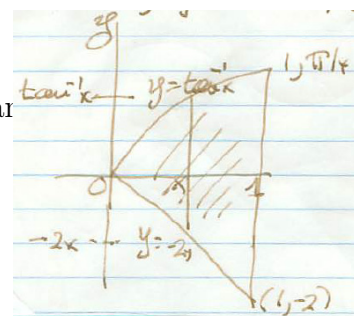 y
1, π/4
tan⁻¹x
y = tan⁻¹x
ar
0 x 1
-2x
y = -2x
(1, -2)